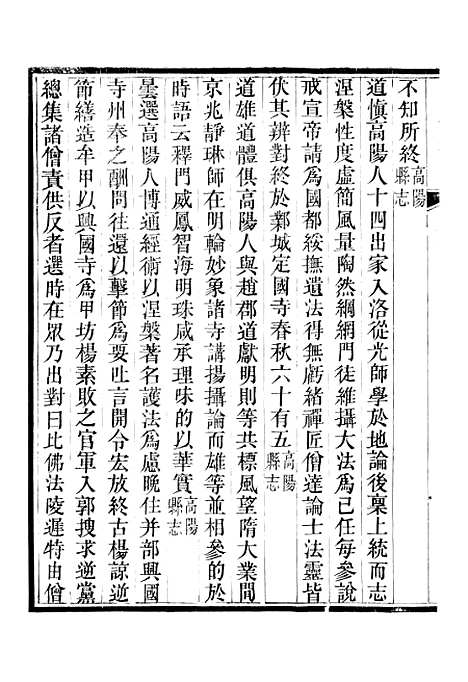 不知所終高陽縣志
道慎高陽人十四出家入洛從光師學於地論後稟上統而志
涅槃性度虛簡風量陶然綱網門徒維攝大法爲己任每參說
戒宣帝請爲國都綏撫遺法得無虧緒禪匠僧達論士法靈皆
伏其辨對終於鄴城定國寺春秋六十有五高陽縣志
道雄道體俱高陽人與趙郡道獻明則等共標風望隋大業間
京兆靜琳師在明輪妙象諸寺講揚攝論而雄等並相參的於
時語云釋門威鳳智海明珠咸承理味的以華實高陽縣志
曇選高陽人博通經術以涅槃著名護法爲慮晚住并部興國
寺州奉之酬問往還以擊節爲要吐言開令宏放終古楊諒逆
節繕造牟甲以興國寺爲甲坊楊素敗之官軍入郭搜求逆黨
總集諸僧責供反者選時在眾乃出對曰比佛法陵遲特由僧